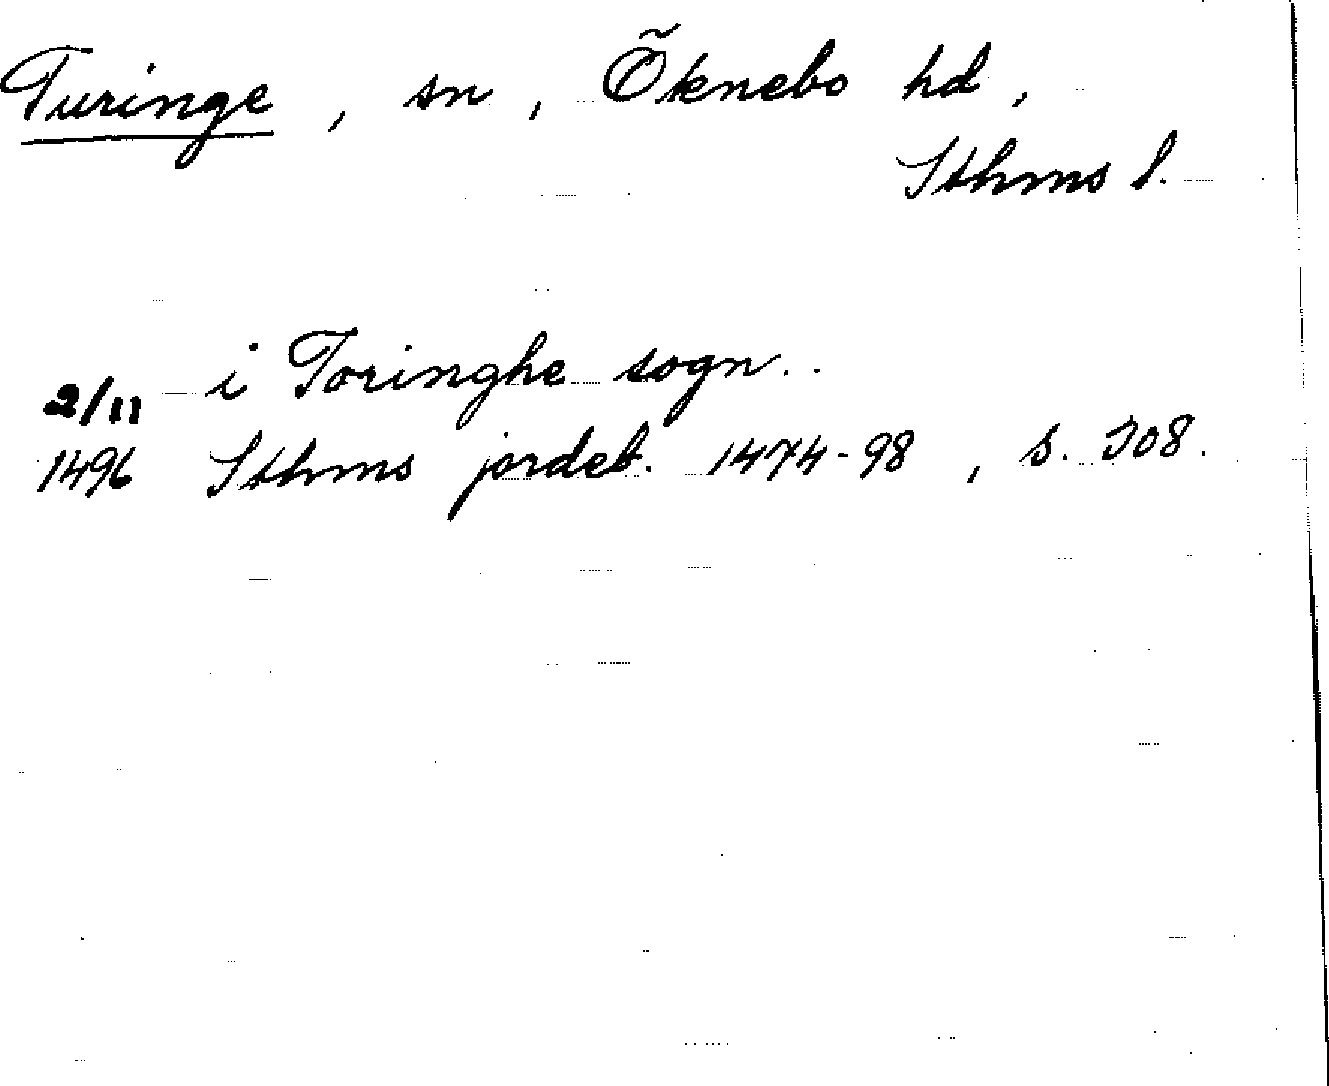 Turinge, sn, Õknebo hd,
Sthms l.
2/11 i Toringhe sogn..
1496 Sthms jordeb. 1474-98, s. 308.